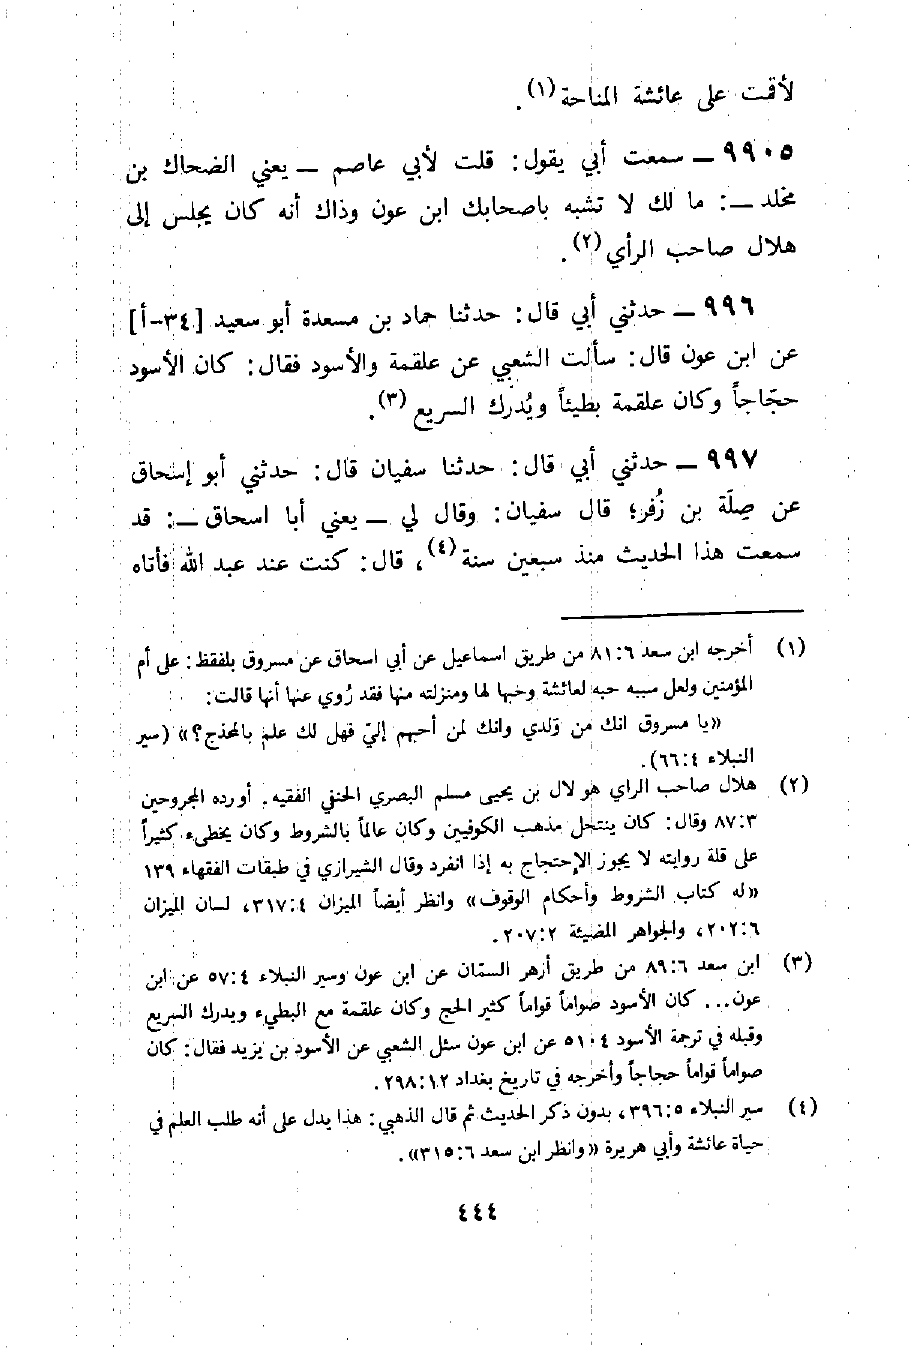 لأقمت على عائشة المناحة (١).
٩٩٠٥ ــ سمعت أبي يقول: قلت لأبي عاصم ــ يعني الضحاك بن
مخلد ــ: ما لك لا تشبه باصحابك ابن عون وذاك أنه كان يجلس إلى
هلال صاحب الرأي (٢).
٩٩٦ ــ حدثني أبي قال: حدثنا حماد بن مسعدة أبو سعيد [٣٤-أ]
عن ابن عون قال: سألت الشعبي عن علقمة والأسود فقال: كان الأسود
حجّاجاً وكان علقمة بطيئاً ويُدرك السريع (٣).
٩٩٧ ــ حدثني أبي قال: حدثنا سفيان قال: حدثني أبو إسحاق
عن صِلَة بن زُفر؛ قال سفيان: وقال لي ــ يعني أبا اسحاق ــ: قد
سمعت هذا الحديث منذ سبعين سنة (٤)، قال: كنت عند عبد الله فأتاه
(١) أخرجه ابن سعد ٦:‏٨١ من طريق اسماعيل عن أبي اسحاق عن مسروق بلفقظ: على أم
المؤمنين ولعل سببه حبه لعائشة وحبها لها ومنزلته منها فقد رُوي عنها أنها قالت:
«يا مسروق انك من وَلدي وانك لمن أحبهم إليّ فهل لك علم بالمخذج؟» (سير
النبلاء ٤:‏٦٦).
(٢) هلال صاحب الراي هو لال بن يحيى مسلم البصري الحنفي الفقيه. أورده المجروحين
٣:‏٨٧ وقال: كان ينتحل مذهب الكوفيين وكان عالماً بالشروط وكان يخطىء كثيراً
على قلة روايته لا يجوز الإحتجاج به إذا انفرد وقال الشيرازي في طبقات الفقهاء ١٣٩
«له كتاب الشروط وأحكام الوقوف» وانظر أيضاً الميزان ٤:‏٣١٧، لسان الميزان
٦:‏٢٠٢، والجواهر المضيئة ٢:‏٢٠٧.
(٣) ابن سعد ٦:‏٨٩ من طريق أزهر السمّان عن ابن عون وسير النبلاء ٤:‏٥٧ عن ابن
عون... كان الأسود صواماً قواماً كثير الحج وكان علقمة مع البطيء ويدرك السريع
وقبله في ترجمة الأسود ٥١٠٤ عن ابن عون سئل الشعبي عن الأسود بن يزيد فقال: كان
صواماً قواماً حجاجاً وأخرجه في تاريخ بغداد ١٢:‏٢٩٨.
(٤) سير النبلاء ٥:‏٣٩٦، بدون ذكر الحديث ثم قال الذهبي: هذا يدل على أنه طلب العلم في
حياة عائشة وأبي هريرة «وانظر ابن سعد ٦:‏٣١٥».
٤٤٤